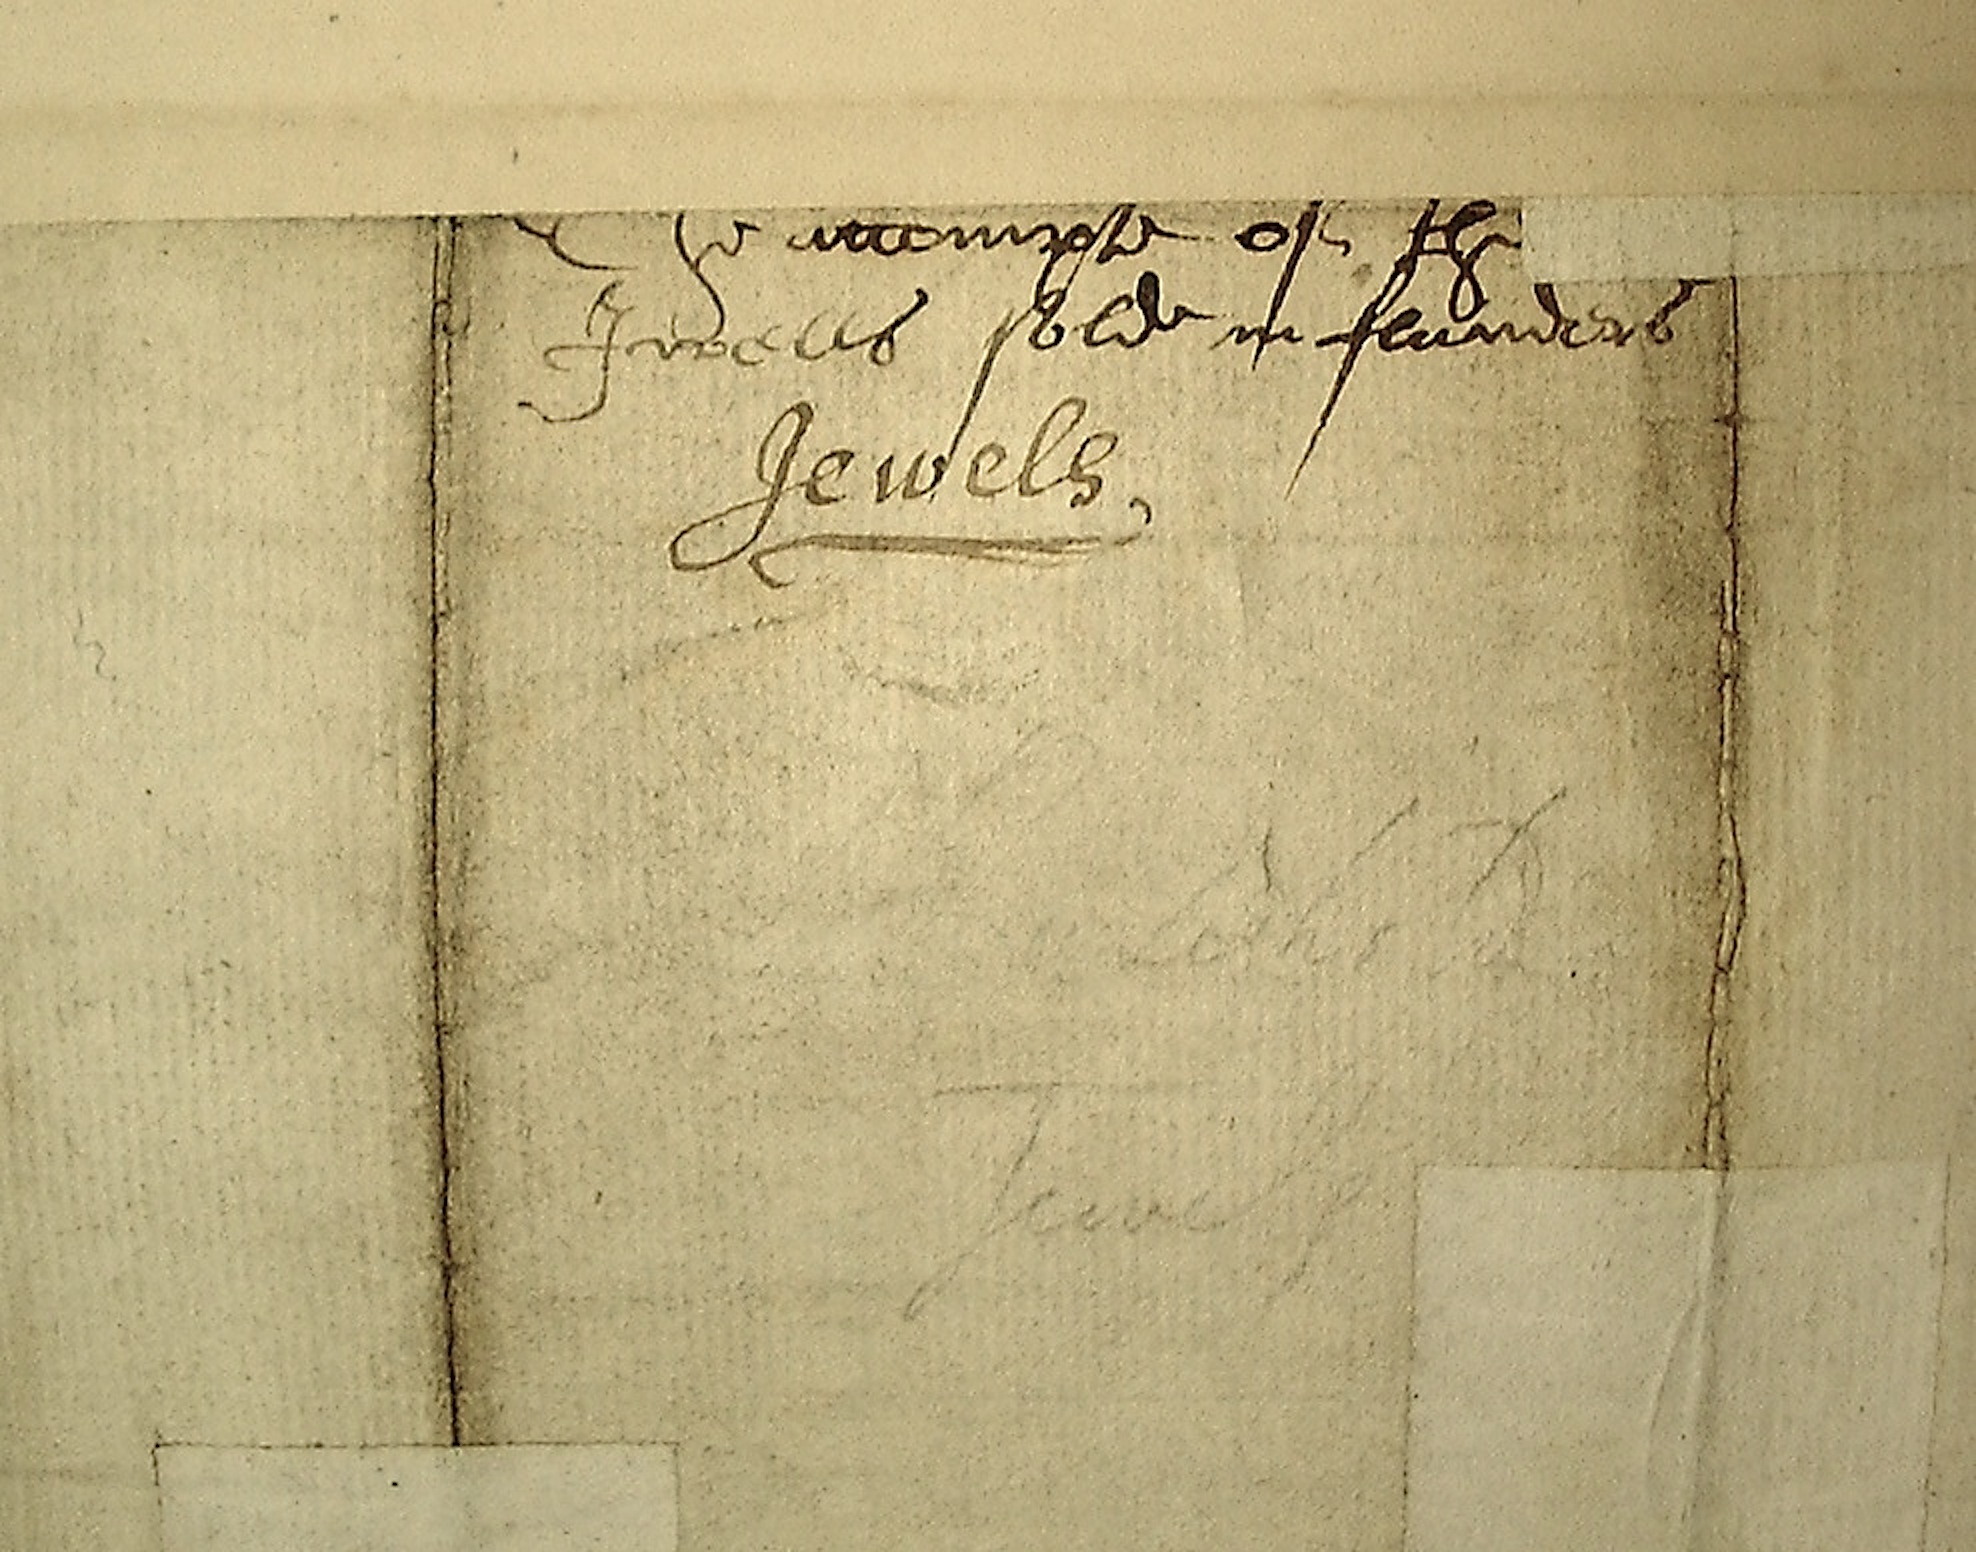 The accompte of the
Jewells solde in flanders
Jewels,
Jewels